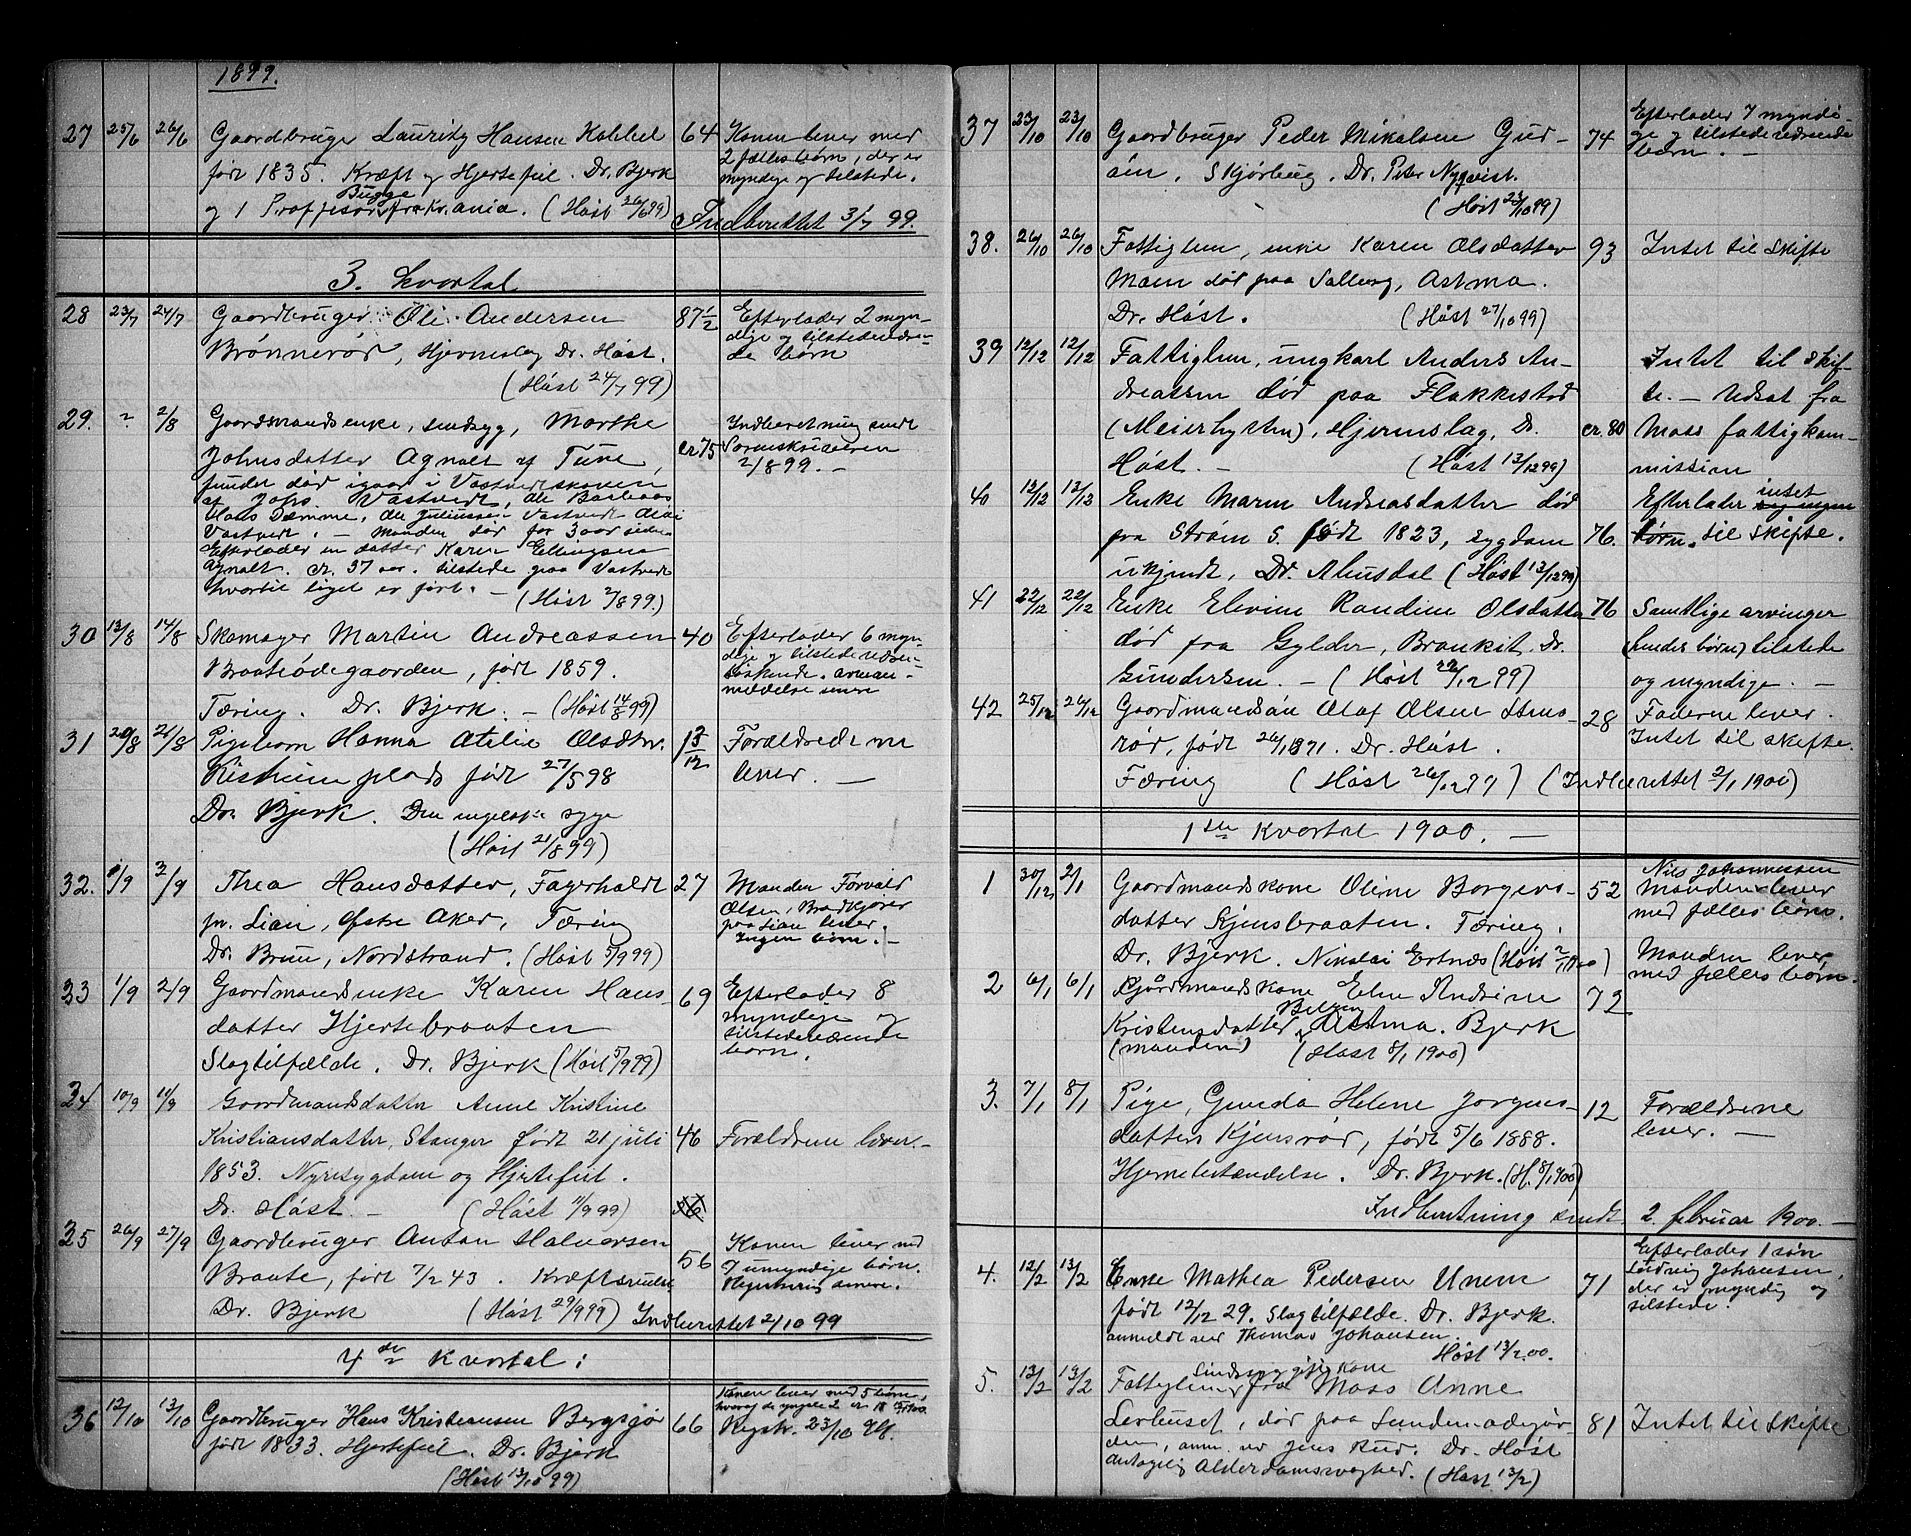 1899.
27 25/6 26/6 Gaardbruger Lauritz Hansen Kabbel 64 Konen lever med
født 1835. Kræft og Hjertefeil. Dr. Bjerk 2 fælles børn, der er
Bugge myndige og tilstede.
og 1 Professor fra Kr.ania. (Høst 26/6 99) Indberettet 3/7 99.
3. Kvartal
28 23/7 24/7 Gaardbruger Ole Andersen 87 1/2 Efterlader 2 myn-
Brønnerød, Hjerneslag Dr. Høst. dige og tilstedeværen-
(Høst 24/7 99) de børn
29. ? 2/8 Gaardmandsenke, sindsyg, Marthe Indberetning sendt
Johnsdatter Agnalt af Tune, cr 75 Sorenskriveren
funden død igaar i Vastvedtskoven 2/8 99. —
af Johs Vastvedt, Ole
Hans Damme, Ole Juliussen Vastvedt
Vastvedt. — Manden død for 3 aar siden
Efterlader en datter Karen Ellingsen
Agnalt. cr. 37 aar. tilstede paa Vastvedt
hvortil liget er ført. — (Høst 2/8 99.)
30 13/8 14/8 Skomager Martin Andreassen 40 Efterlader 6 myn-
Braatødegaarden, født 1859. dige og tilstedeværen-
Tæring. Dr. Bjerk. — (Høst 14/8 99) søskende.
meddelse senere
31 20/8 21/8 Pigebarn Hanna Atilie Olsdtr. 1 3/12 Forældrene
plads født 27/5 98 lever. —
Dr. Bjerk. Den engelske syge
(Høst 21/8 99)
32. 1/9 3/9 Thea Hansdatter, Fagerholdt 27 Manden Torvald
pr. Lian, Østre Aker, Tæring Olsen, Brødkjører
Dr. Brun, Nordstrand. (Høst 5/9 99) paa Lian lever.
Ingen børn. —
33 1/9 2/9 Gaardmandsenke Karen Hans- 69 Efterlader 8
datter Hjertebraaten myndige og
Slagtilfælde. Dr. Bjerk (Høst 5/9 99) tilstedeværende
børn.
34 10/9 11/9 Gaardmandsdatter Anne Kristine
Kristiansdatter, Stanger født 21 juli 46 Forældrene lever. —
1853. Nyresygdom og Hjertefeil.
Dr. Høst. — (Høst 11/9 99)
35 26/9 27/9 Gaardbruger Anton Halvorsen 56 Konen lever med
Braate, født 7/2 43. Kræftsvulst 7 umyndige børn.
Dr. Bjerk (Høst 29/9 99) Registrering senere.
Indberettet 2/10 99
4de Kvartal:
36 12/10 13/10 Gaardbruger Hans Kristiansen Bergsjø 66 Konen lever med 5 børn,
født 1833. Hjertefeil. Dr. Bjerk hvoraf de yngste 2 er 18
(Høst 13/10 99) Registr. 23/10 99.
37 23/10 23/10 Gaardbruger Peder Mikalsen Gud- 74 Efterlader 7 myndi-
øien. Skjørbug. Dr. Peter Nyqvist. ge og tilstedeværende
(Høst 23/10 99) børn. —
38. 26/10 26/10 Fattiglem, enke Karen Olsdatter 93 Intet til skifte
Moen død paa Solberg, Astma.
Dr. Høst. (Høst 27/10 99)
39 12/12 12/12 Fattiglem, ungkarl Anders An- Intet til skif-
dreassen død paa Flakkestad te. — Udsat fra
(Meierhytten), Hjerneslag, Dr. cr. 80 Moss fattigkom-
Høst. — (Høst 13/12 99) mission
40 12/12 13/12 Enke Maren Andreasdatter død Efterlader intet og ingen
paa Strøm S. født 1823, sygdom 76. børn. til skifte.
ukjendt, Dr. Ahusdal (Høst 13/12 99)
41 22/12 22/12 Enke Elevine Randine Olsdatter 76 Samtlige arvinger
død fra Gylder, Bronkit. Dr. (hendes børn) tilstede
Gundersen. — (Høst 22/12 99) og myndige. —
42 25/12 26/12 Gaardmandssøn Olaf Olsen 28 Faderen lever.
rød, født 26/1 1871. Dr. Høst. Intet til skifte.
Tæring (Høst 26/12 99) (Indberettet 2/1 1900)
1ste Kvartal 1900. —
1 30/12 2/1 Gaardmandskone Oline Borgers- 52 Nils Johannessen
datter Kjensbraaten. Tæring. Manden lever
Dr. Bjerk. Nikolai Ertnæs (Høst 2/1 1900) med fælles børn.
2 6/1 6/1 Gaardmandskone Elen Andrine 72 Manden lever
Kristensdatter, Astma. Bjerk med fælles børn.
(manden) (Høst 8/1 1900)
3. 7/1 8/1 Pige, Gunda Helene Jørgens- 12 Forældrene
datter Kjensrød, født 5/6 1888. lever. —
Hjernebetændelse. Dr. Bjerk. (H. 8/1 1900)
Indberetning sendt 2. februar 1900. —
4. 12/2 13/2 Enke Mathea Pedersen Unem 71 Efterlader 1 søn
født 12/12 29. Slagtilfælde. Dr. Bjerk. Ludvig Johansen,
anmeldt ved Thomas Johansen. der er myndig og
Høst 13/2.00. tilstede.
5. 13/2 13/2 Fattiglem fra Moss Anne 81 Intet til skifte
Sindssyg pigekone
Lerhuset, død paa Sundemødegaar-
den, anm. ved Jens Rud. Dr. Høst
antagelig Alderdomssvaghed. (Høst 13/2)